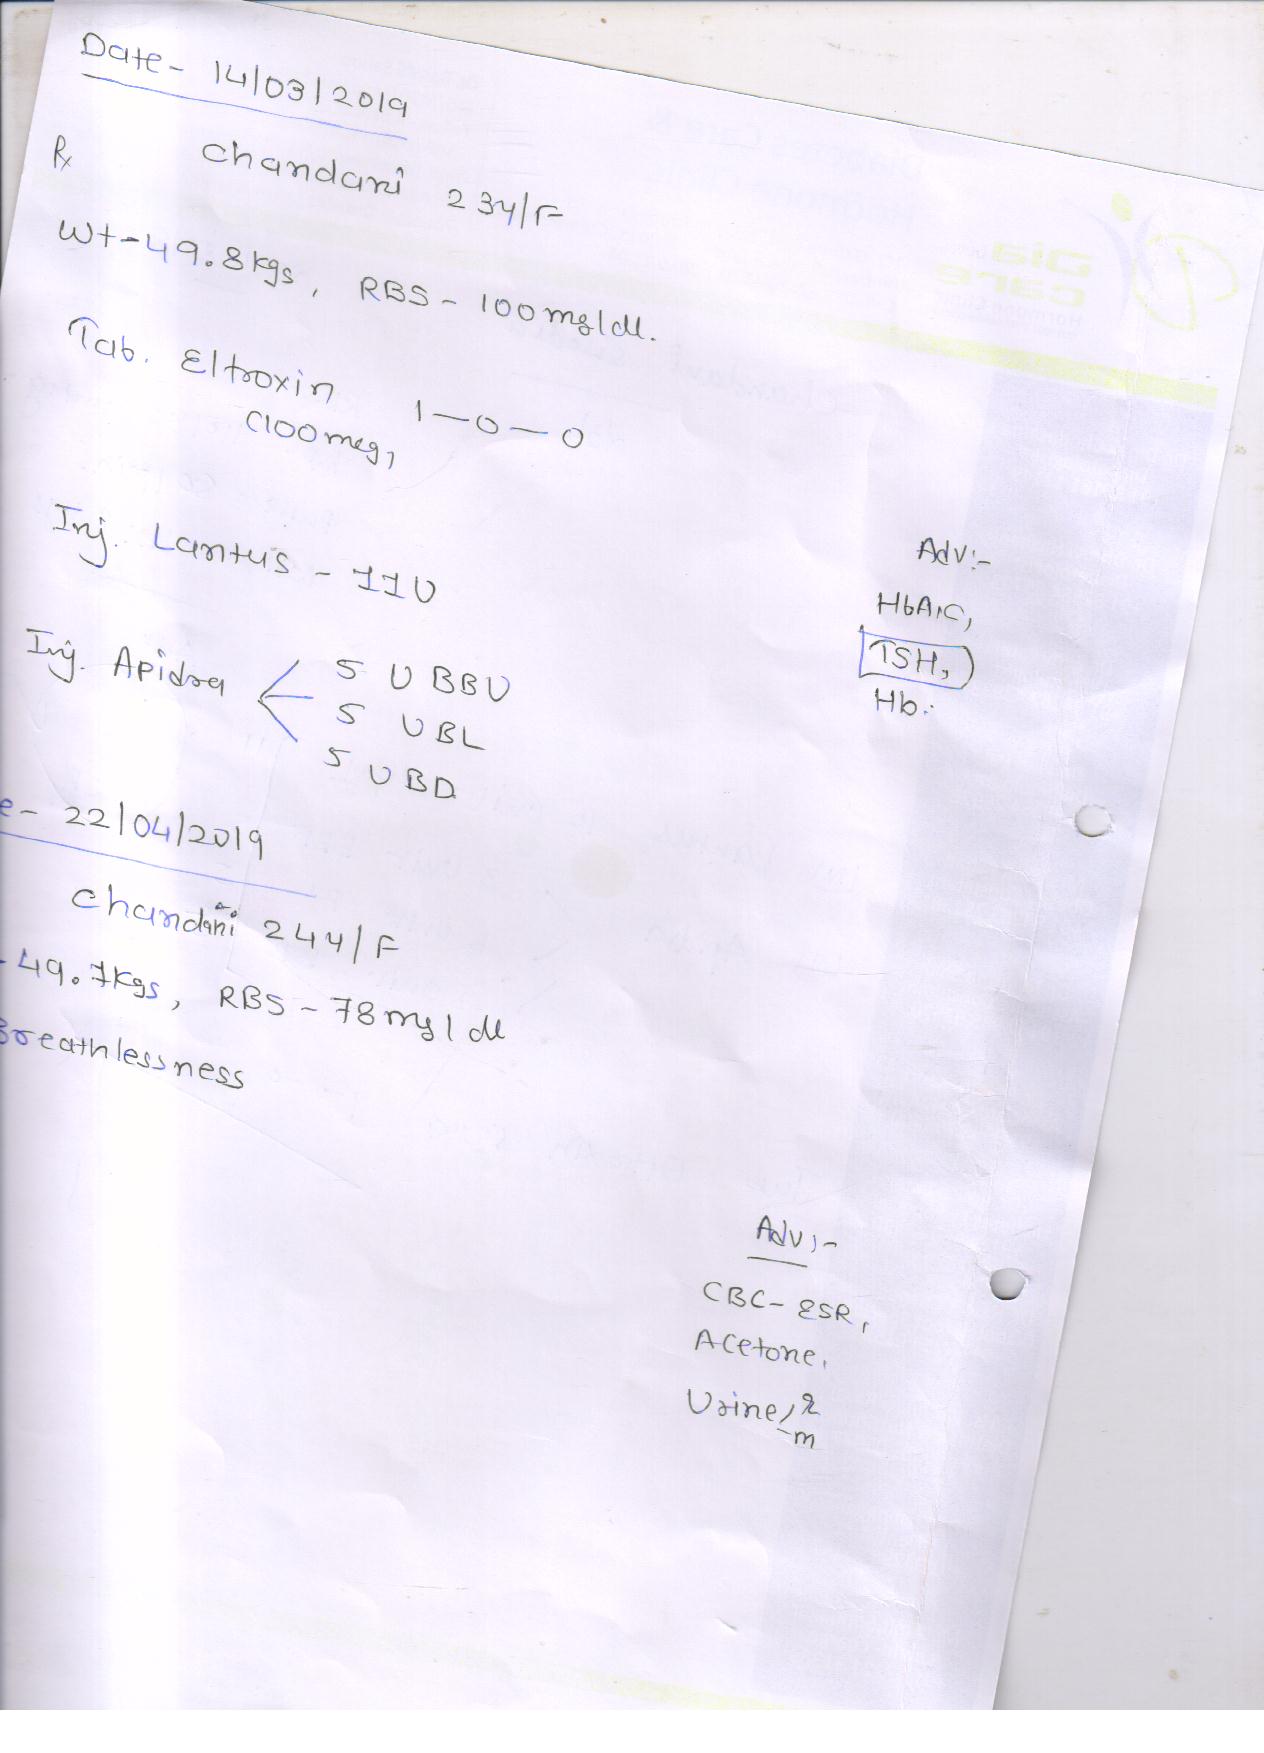 Date- 14/03/2019
Rx Chandani 23y/F
Wt-49.8kgs, RBS- 100mg/dl.
Tab. Eltroxin 1-0-0
(100mcg)
Inj. Lantus - 11U
Inj. Apidra < 5 U BBV
5 U BL
5 U BD
Adv:-
HbA1C,
TSH,
Hb.
e- 22/04/2019
Chandani 24y/F
- 49.7kgs, RBS- 78mg/dl
Breathlessness
Adv:-
CBC-ESR,
Acetone,
Urine, r
m